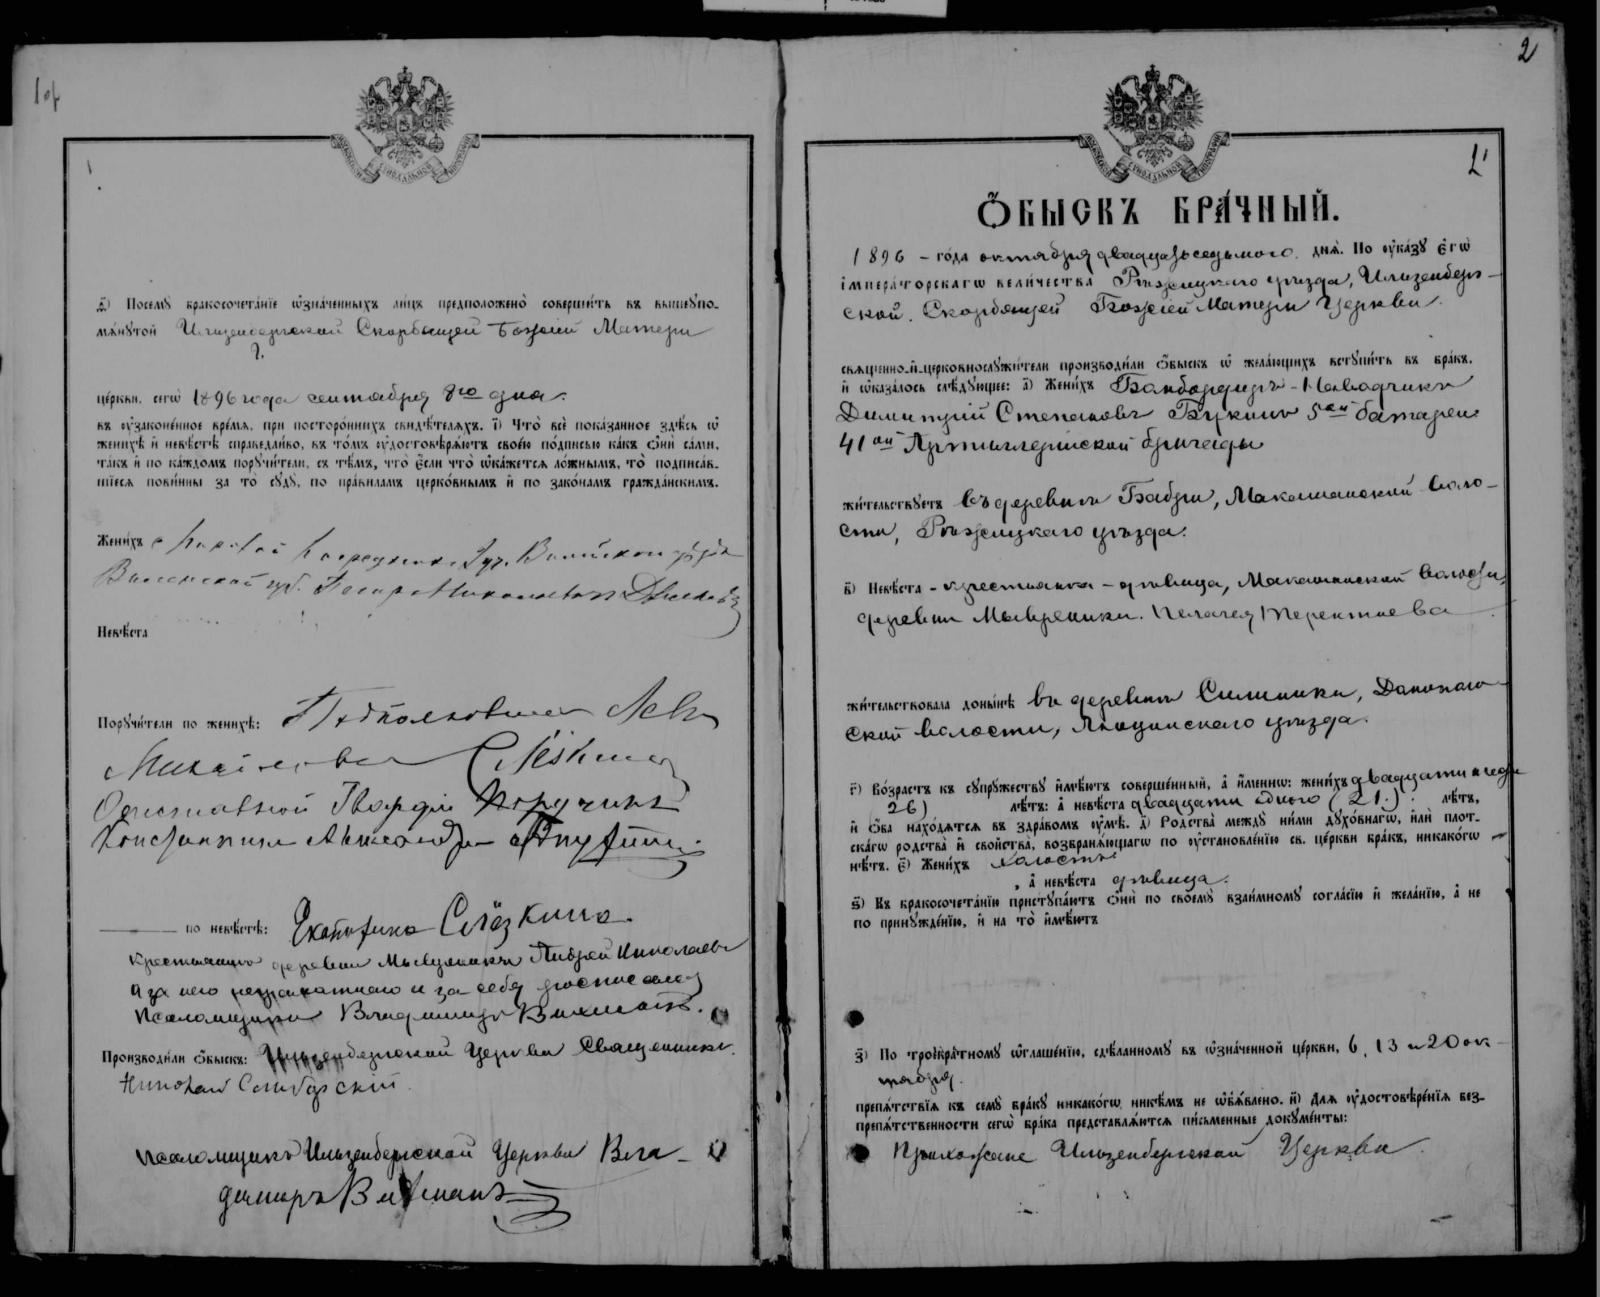 1об
д҃) Посему̀ бракосочета́нїе ѡ҆зна́ченныхъ ли́цъ предположено̀ соверши́ть въ вышеупо-
мѧ́нутой Ильзенбергской Скорбящей Божіей Матери
це́ркви. сегѡ̀ 1896 года сентября 8го дня.
въ ѹ҆зако́ненное вре́мѧ, при посторо́ннихъ свидѣ́телѧхъ. і҃) Что̀ всѐ пока́занное здѣ́сь ѡ҆
женихѣ̀ и҆ невѣ́стѣ справедли́во, въ то́мъ ѹ҆достовѣрѧ́ютъ свое́ю по́дписью ка́къ ѻ҆нѝ са́ми,
та́къ и҆ по ка́ждомъ поручи́тели, съ тѣ́мъ, что̀ є҆́сли что̀ ѡ҆ка́жетсѧ ло́жнымъ, то̀ подписа́в-
шїесѧ пови́нны за то̀ сѹдѹ̀, по пра́виламъ церко́внымъ и҆ по зако́намъ гражда́нскимъ.
Жени́хъ
Виленской губ.
Невѣ́ста
Порѹчи́тели по женихѣ̀: Подполковникъ Левъ
Михайловъ Слёзкинъ
Отставной Гвардіи Поручикъ
Константинъ
по невѣ́стѣ: Екатерина Слёзкина.
крестьянинъ деревни Андрей Николаевъ
а за него неграмотнаго и за себя росписался
псаломщикъ Владимиръ Вихманъ.
Производи́ли ѻ҆́быскъ: Ильзенбергской Церкви Священникъ
Николай
псаломщикъ Ильзенбергской Церкви Вла-
димиръ Вихманъ
2
2
Ѻ҆́БЫСКЪ БРА́ЧНЫЙ.
1896 – го́да октября двадцать седьмого дня̀. По ѹ҆ка́зѹ є҆гѡ̀
і҆мпера́торскагѡ вели́чества Рѣжицкаго уѣзда, Ильзенберг-
ской Скорбящей Божіей Матери Церкви.
свѧще́нно-и҆-церковнослѹжи́тели производи́ли ѻ҆́быскъ ѡ҆ жела́ющихъ встѹпи́ть въ бра́къ,
и҆ ѡ҆каза́лось слѣ́дѹющее: а҃) Жени́хъ Бомбардиръ-Наводчикъ
Димитрій Степановъ Букинъ 5ой батареи
41ой Артиллерійской бригады
жи́тельствѹетъ въ деревнѣ Бабри, Макашанской воло-
сти, Рѣжицкаго уѣзда.
в҃) Невѣ́ста – крестьянка – дѣвица, Макашанской волости,
деревни Пелагея Терентьева
жи́тельствовала доны́нѣ въ деревнѣ Силиники,
ской волости, Люцинскаго уѣзда.
г҃) Во́зрастъ къ сѹпрѹ́жествѹ и҆мѣ́ютъ соверше́нный, а҆ и҆́менно: жени́хъ двадцати шести
26) лѣ́тъ: а҆ невѣ́ста двадцати одного (21.) лѣ́тъ,
и҆ ѻ҆́ба нахо́дѧтсѧ въ здра́вомъ ѹ҆мѣ̀. д҃) Родства̀ междѹ ни́ми дѹхо́внагѡ, и҆лѝ плот-
ска́гѡ родства̀ и҆ сво́йства, возбранѧ́ющагѡ по ѹ҆становле́нїю св. це́ркви бра́къ, никако́гѡ
нѣ́тъ. є҃) Жени́хъ холостъ
, а҆ невѣ́ста дѣвица.
ѕ҃) Къ бракосочета́нїю пристѹпа́ютъ ѻ҆нѝ по своемѹ̀ взаи́мномѹ согла́сїю и҆ жела́нїю, а҆ не
по принѹжде́нїю, и҆ на то̀ и҆мѣ́ютъ
з҃) По троекра́тномѹ ѡ҆глаше́нїю, сдѣ́ланномѹ въ ѡ҆зна́ченной це́ркви, 6, 13 и 20 ок-
тября.
препѧ́тствїѧ къ семѹ̀ бра́кѹ никако́гѡ никѣ́мъ не ѡ҆б̾ѧ́влено. и҃) Длѧ ѹ҆достовѣре́нїѧ без-
препѧ́тственности сегѡ̀ бра́ка представлѧ́ютсѧ пи́сьменные докѹме́нты:
Прихожане Ильзенбергской Церкви.